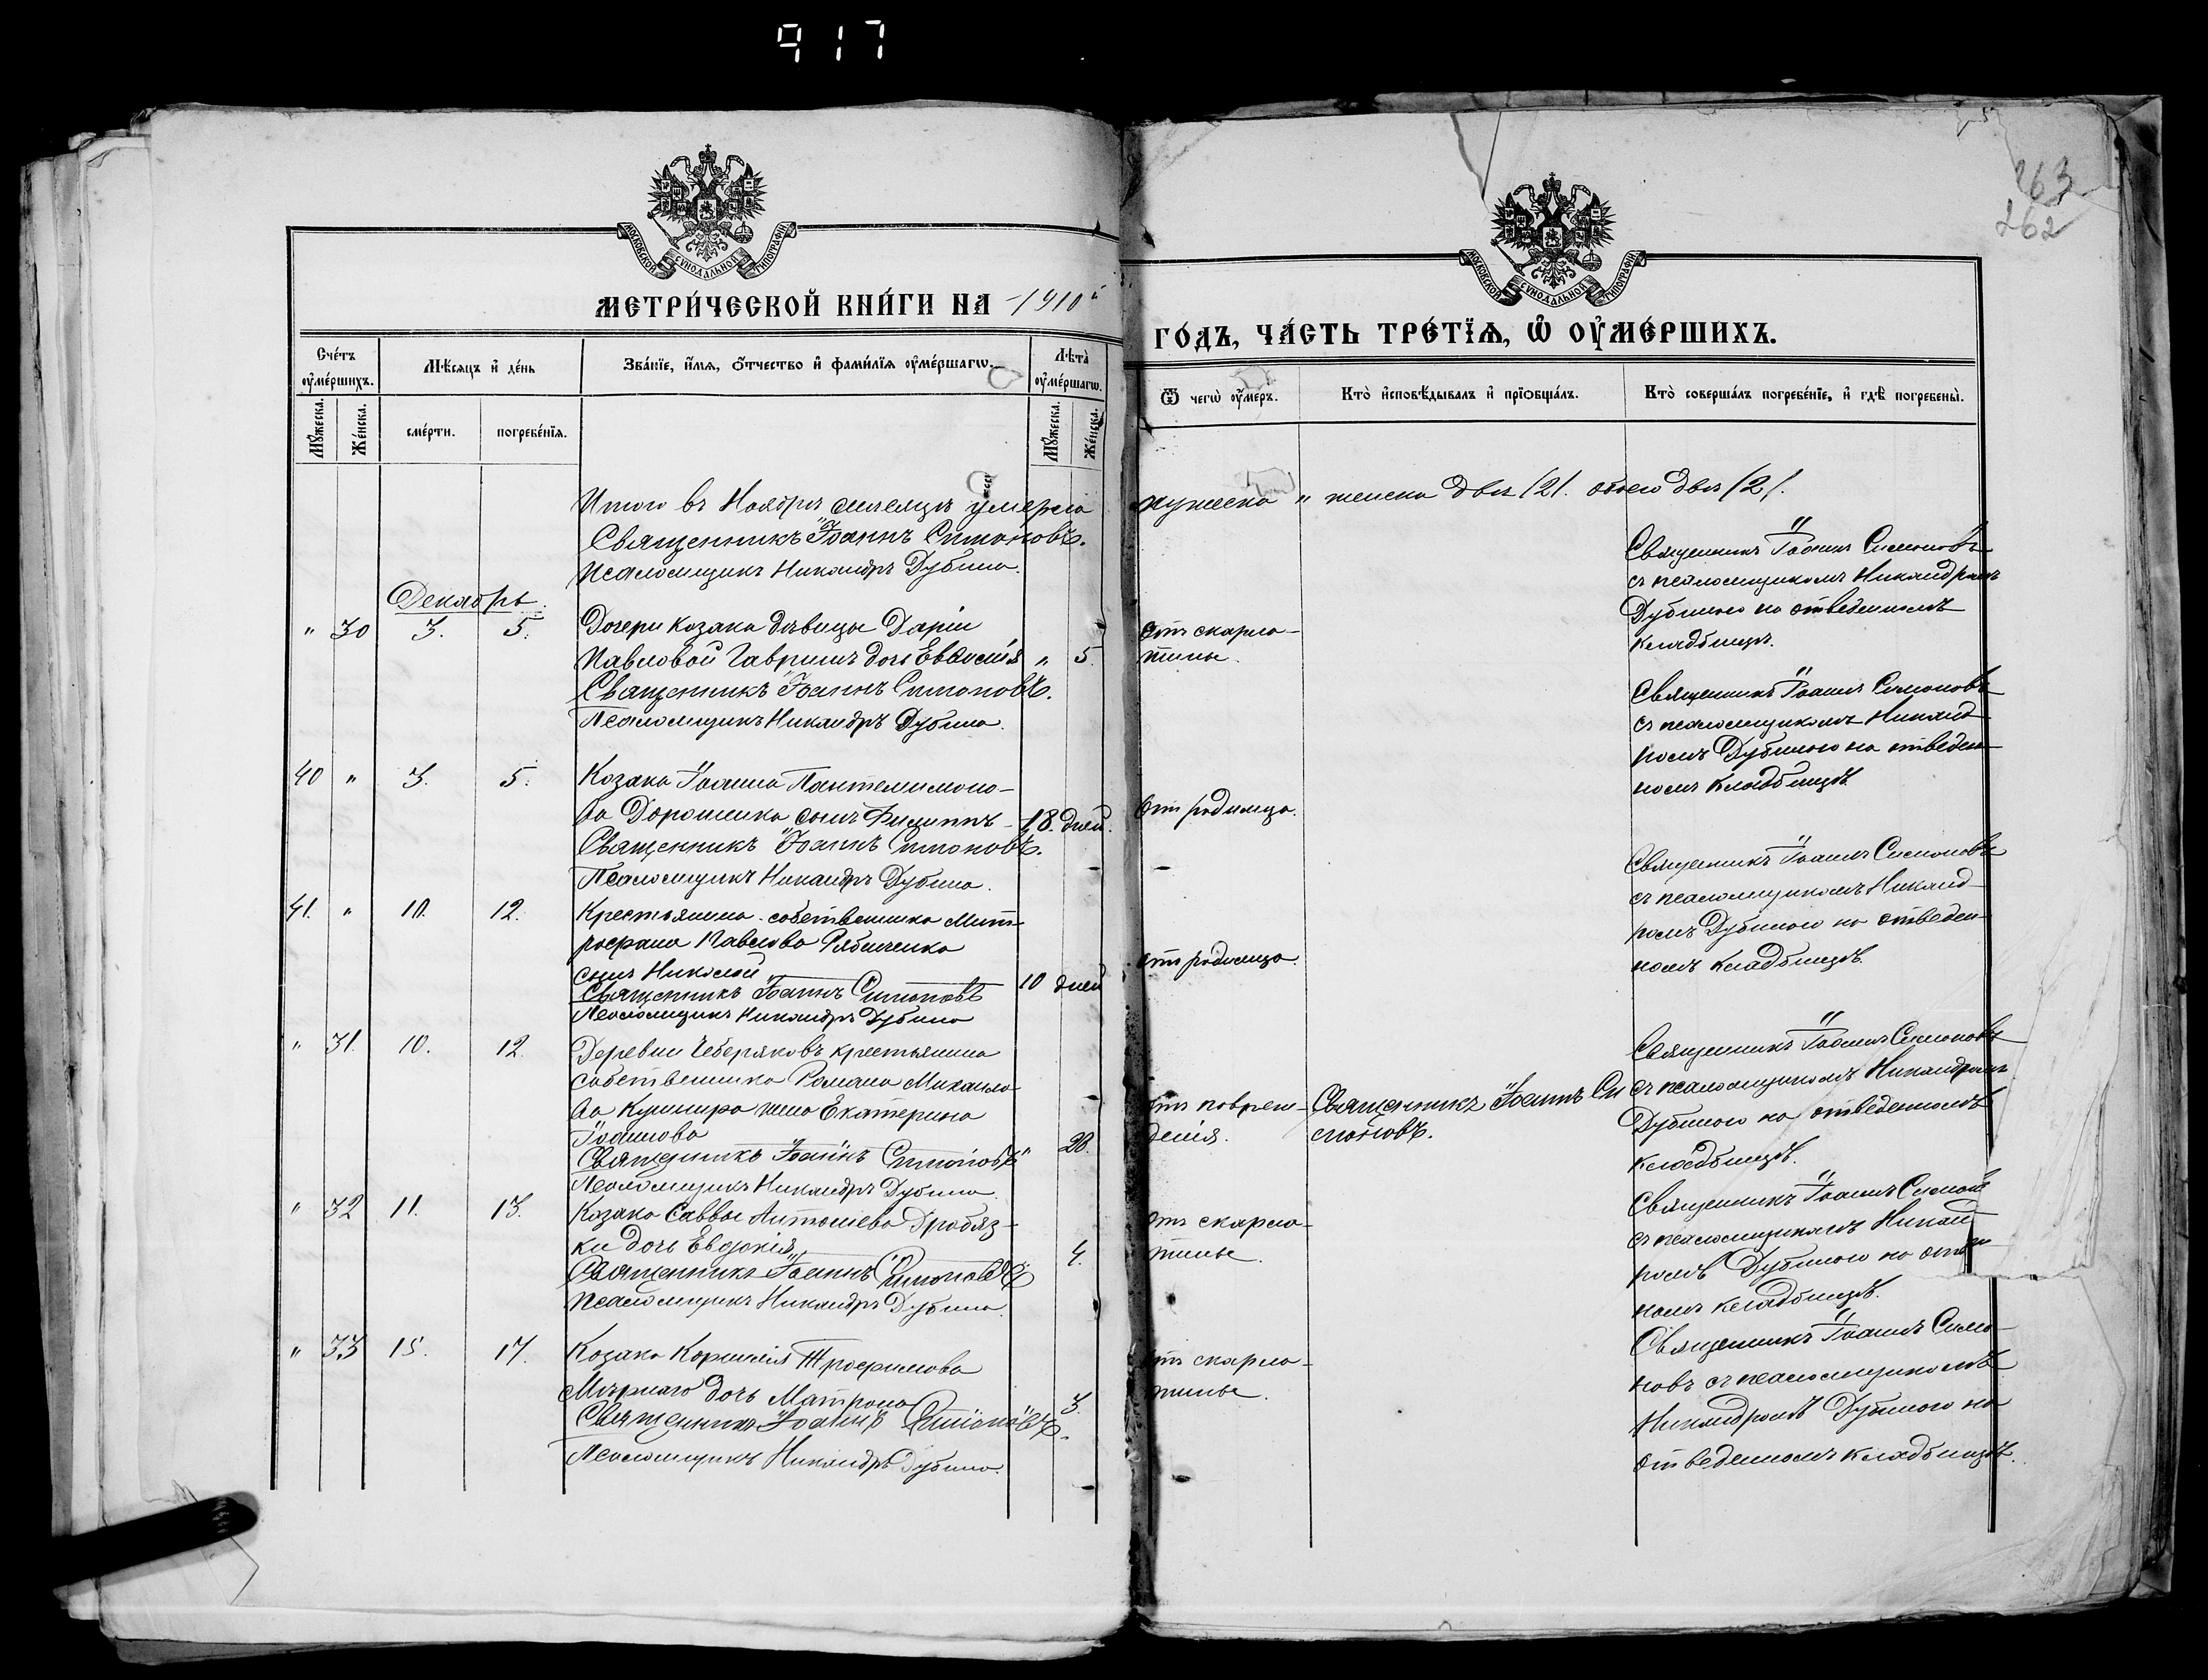 917
263
262
МОСКОВСКОЙ СУНОДАЛЬНОЙ ТИПОГРАФІИ
МОСКОВСКОЙ СУНОДАЛЬНОЙ ТИПОГРАФІИ
МЕТРИ́ЧЕСКОЙ КНИ́ГИ НА 1910й
ГО́ДЪ, ЧА́СТЬ ТРЕ́ТЇѦ, Ѡ҆ ОУ҆МЕ́РШИХЪ.
Сче́тъ оу҆ме́ршихъ.
Мѣ́сяцъ и҆ де́нь
Зва́нїе, и҆́мѧ, ѻ҆́тчество и҆ фами́лїѧ оу҆ме́ршагѡ.
Лѣ̀та оу҆ме́ршагѡ.
Ѿ чегѡ̀ оу҆́меръ.
Кто̀ и҆сповѣ́дывалъ и҆ прїѻбща́лъ.
Кто̀ соверша́лъ погребе́нїе, и҆ гдѣ̀ погребены̀.
Мꙋ́жеска.
Же́нска.
сме́рти.
погребе́нїѧ.
Мꙋ́жеска.
Же́нска.
Итого въ Ноябрѣ месяцѣ умерло
мужеска " женска два /2/. обоего два /2/.
Священникъ Іоаннъ Симоновъ.
Псаломщикъ Никандръ Дубина.
Декабрь.
" 30 3. 5. Дочери козака дѣвицы Даріи
Павловой Гавришъ дочь " 5.
Священникъ Іоаннъ Симоновъ.
Псаломщикъ Никандръ Дубина.
отъ скарла-
тины.
Священникъ Іоаннъ Симоновъ
съ псаломщикомъ Никандромъ
Дубиною на отведенномъ
кладбищѣ.
40 " 3. 5. Козака Іоанна Пантелимоно-
ва Дорошенка сынъ Филиппъ 18. дней.
Священникъ Іоаннъ Симоновъ.
Псаломщикъ Никандръ Дубина.
отъ родимца.
Священникъ Іоаннъ Симоновъ
съ псаломщикомъ Никанд-
ромъ Дубиною на отведен-
номъ кладбищѣ.
41. " 10. 12. Крестьянина-собственника Мит-
рофана Павлова Рябченка
сынъ Николай 10 дней
Священникъ Іоаннъ Симоновъ
Псаломщикъ Никандръ Дубина
отъ родимца.
Священникъ Іоаннъ Симоновъ
съ псаломщикомъ Никанд-
ромъ Дубиною на отведен-
номъ кладбищѣ.
" 31. 10. 12. Деревни Чеберяковъ крестьянина
собственника Романа Михаило-
ва Кушнира жена Екатерина
Іоаннова 28.
Священникъ Іоаннъ Симоновъ
Псаломщикъ Никандръ Дубина.
отъ повреж-
денія.
Священникъ Іоаннъ Си
моновъ.
Священникъ Іоаннъ Симоновъ
съ псаломщикомъ Никандромъ
Дубиною на отведенномъ
кладбищѣ.
" 32 11. 13. Козака Саввы Антоніева Дробяз-
ки дочь Евдокія 4.
Священникъ Іоаннъ Симоновъ
Псаломщикъ Никандръ Дубина.
отъ скарла-
тины.
Священникъ Іоаннъ Симонов
съ псаломщикомъ Никанд
ромъ Дубиною на
номъ кладбищѣ.
" 33 15. 17. Козака Корнилія Трофимова
Мѣрнаго дочь Матрона 3.
Священникъ Іоаннъ Симоновъ.
Псаломщикъ Никандръ Дубина.
отъ скарла-
тины.
Священникъ Іоаннъ Симо-
новъ съ псаломщикомъ
Никандромъ Дубиною на
отведенномъ кладбищѣ.